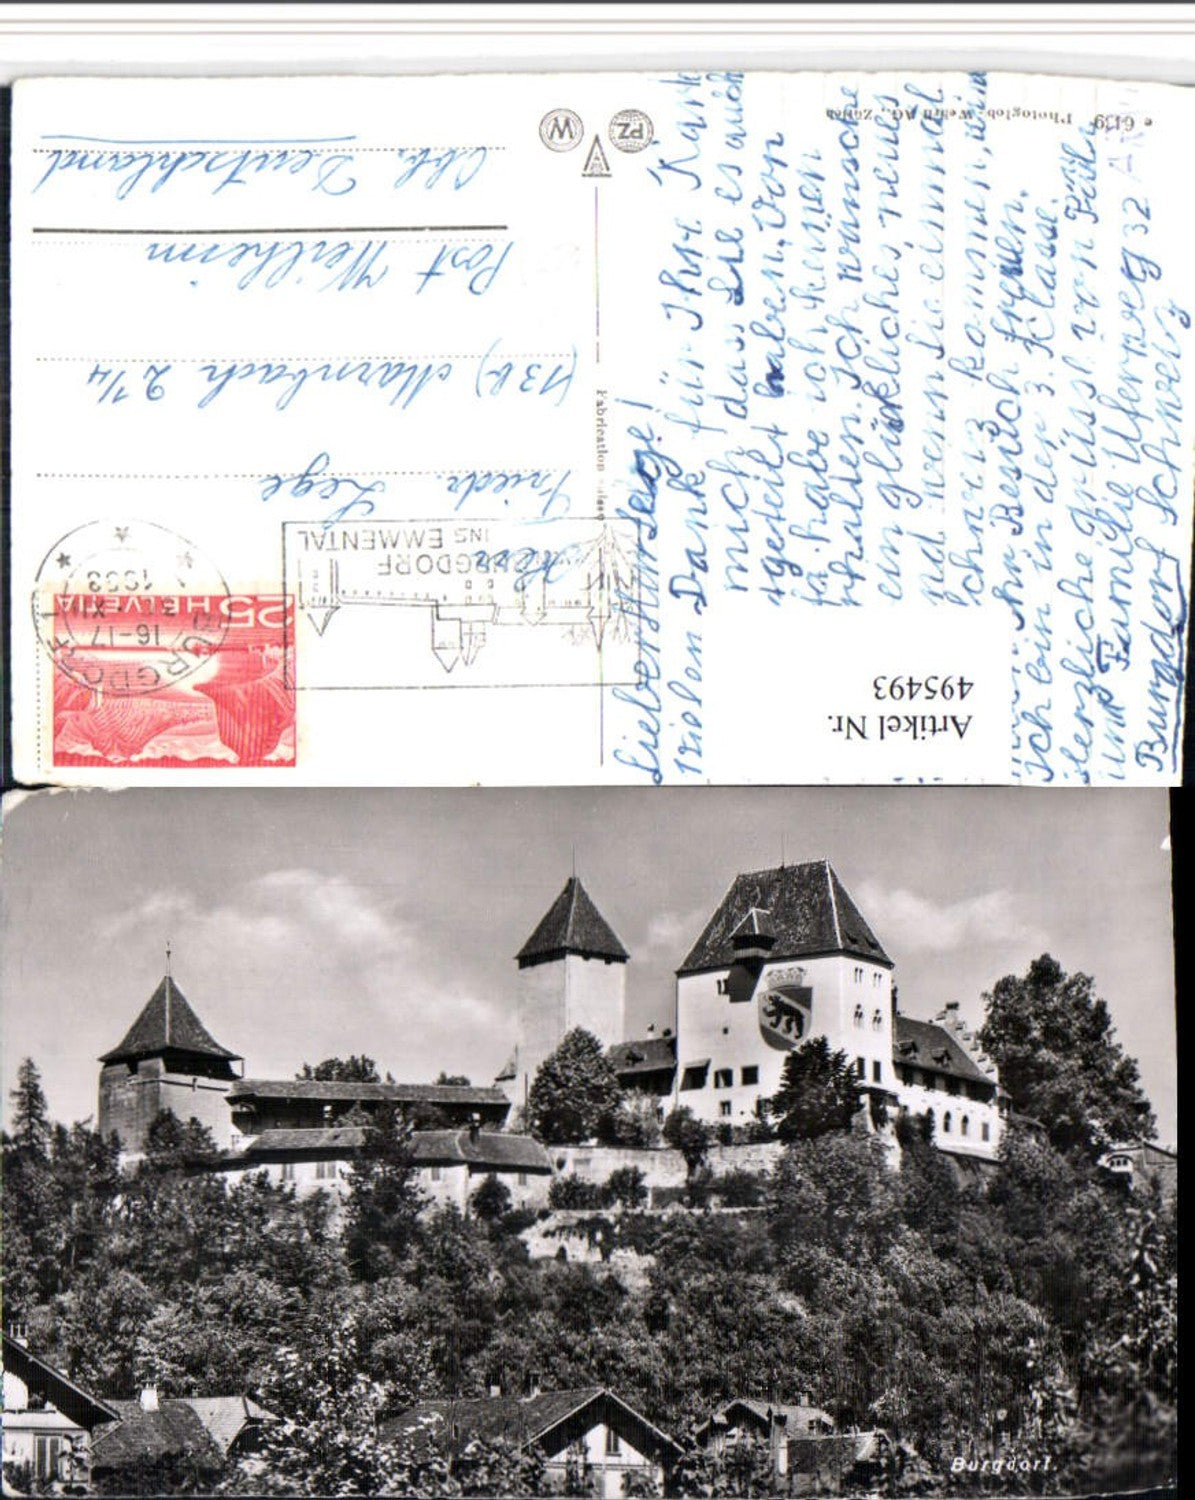 Lieber Herr Lege!
vielen Dank für Ihre Karte
mich dass Sie es auch
haben, Von
ja habe ich keinen
rhalten. Ich wünsche
ein glückliches, neues
nd wenn Sie einmal
chweiz kommen, wü
Ihr Besuch freuen.
Ich bin in der 3. Klasse.
Herzliche Grüsse von
und Familie Uferweg 32
Burgdorf Schweiz
e 6139 Photoglob-Wehrli AG., Zürich
PZ
W
Fabrication suisse
HELVETIA 25
BURGDORF 1
16-17
3. XII
1953
BURGDORF
INS EMMENTAL
Herr
Friedr. Lege
(13b) Marnbach 2 1/4
Post Weilheim
Obb. Deutschland
Artikel Nr.
495493
Burgdorf.